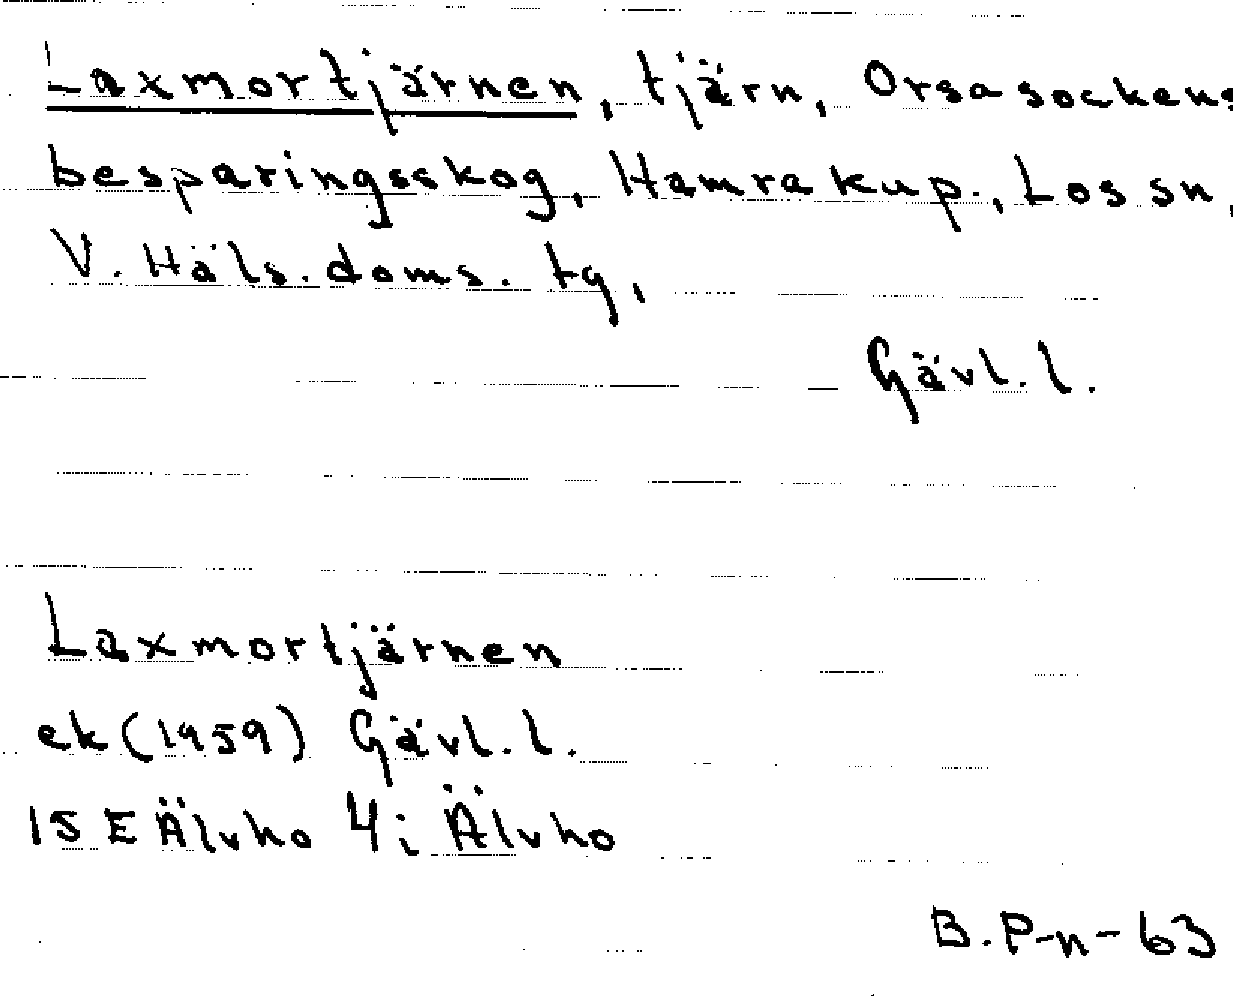 Laxmortjärnen, tjärn, Orsa sockens
besparingsskog, Hamra kup., Los sn,
V. Häls. doms. tg,
Gävl. l.
Laxmortjärnen
ek (1959) Gävl. l.
15 E Älvho 4i Älvho
B. P-n-63